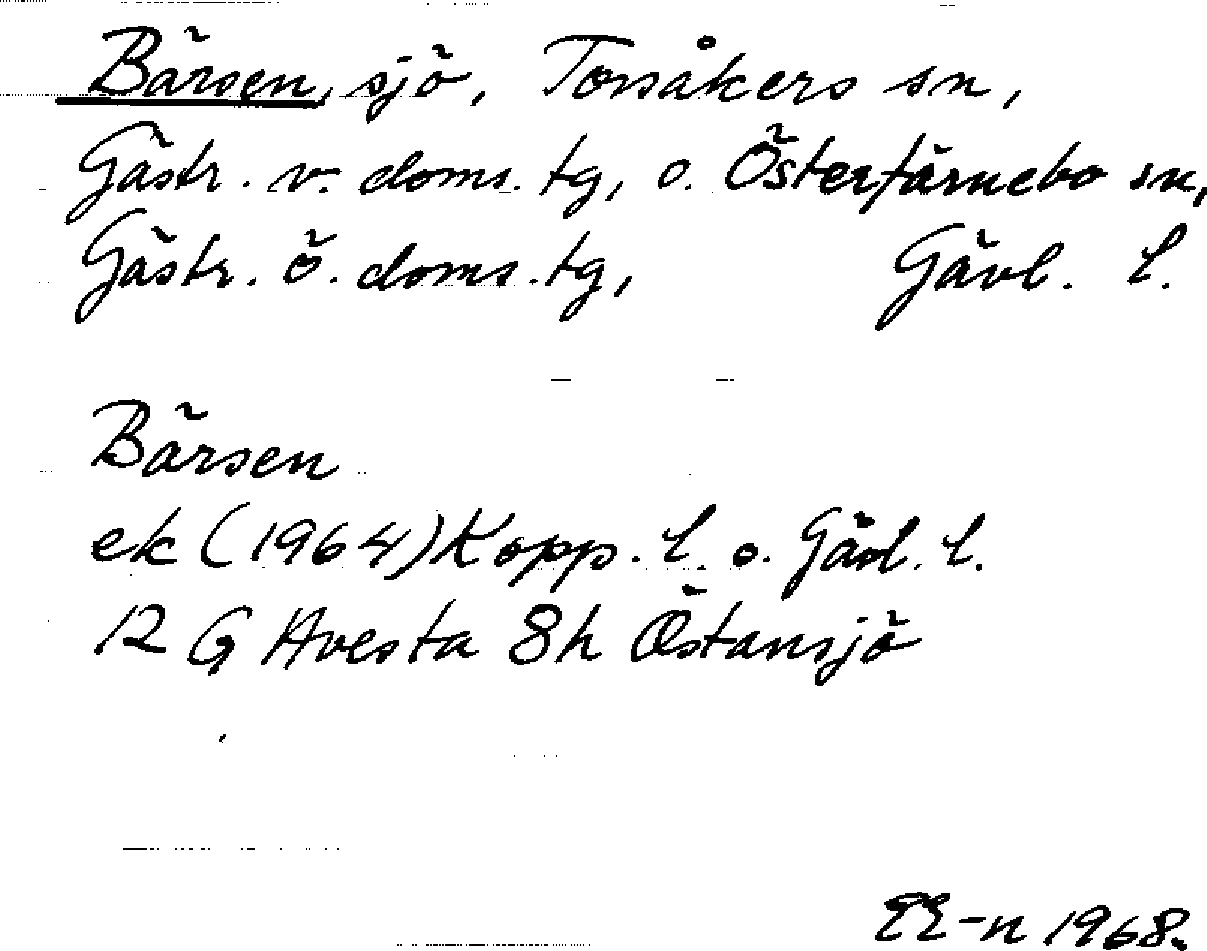 Bärsen, sjö, Torsåkers sn,
Gästr. v. doms. tg, o. Österfärnebo sn,
Gästr. ö. doms. tg, Gävl. l.
Bärsen
ek (1964) Kopp. l. o. Gävl. l.
12 G Avesta 8h Östansjö
EE-n 1968.